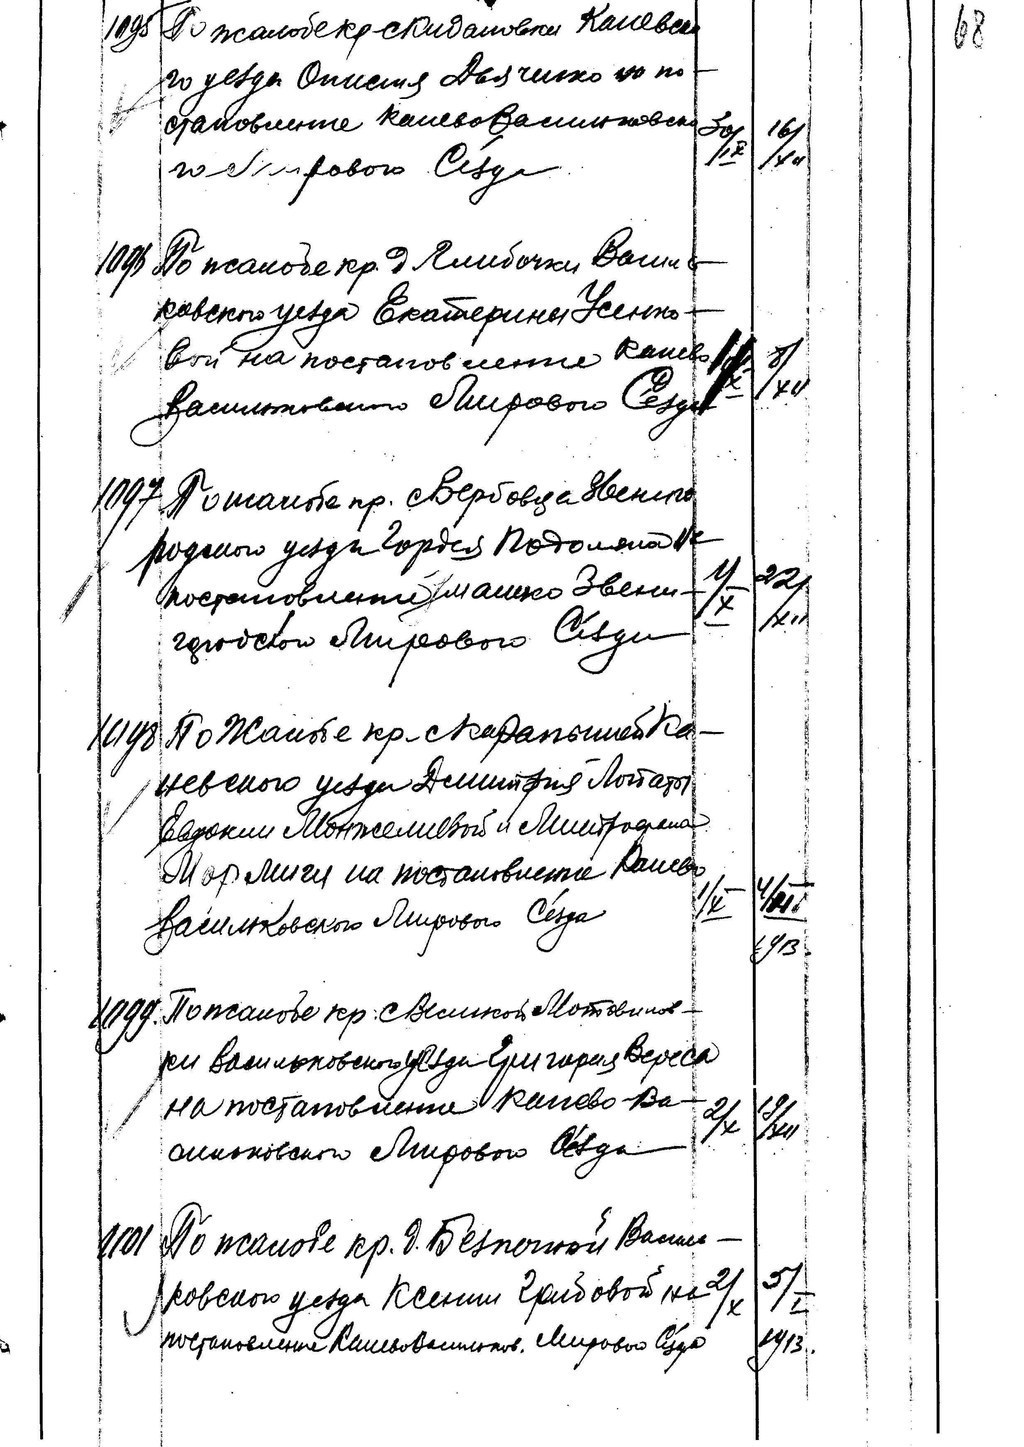 68
1095 По жалобе кр. с Скидановки Каневско
го уезда Онисия Дьяченко на по-
становление Канево Васильковско 30/IX 16/XII
го Мирового Сезда
1096 По жалобе кр. д Глибочки Василь-
ковского уезда Екатерины Усенко-
вой на постановление Канево X 8/XII
Васильковского Мирового Сезда
1097 По жалобе кр. с Вербовца Звениго
родского уезда Гордея Подоляна на
постановление Умано Звени- 1/X 22/XII
городского Мирового Сезда
1098 По Жалобе кр. с Карапышей Ка-
невского уезда Дмитрия Лопаты
Евдокии Монжелиевой и Митрофана
на постановление Канево
Васильковского Мирового Сезда 1/X 4/XII
1913.
1099. По жалобе кр. с Великой Мотовилов-
ки Васильковского уезда Григория Вереса
на постановление Канево-Ва- 2/X 19/XII
сильковского Мирового Сезда
1101 По жалобе кр. д. Безпечной Василь-
ковского уезда Ксении Грибовой на 2/X 5/I
постановление Канево Васильков. Мирового Сезда 1913.